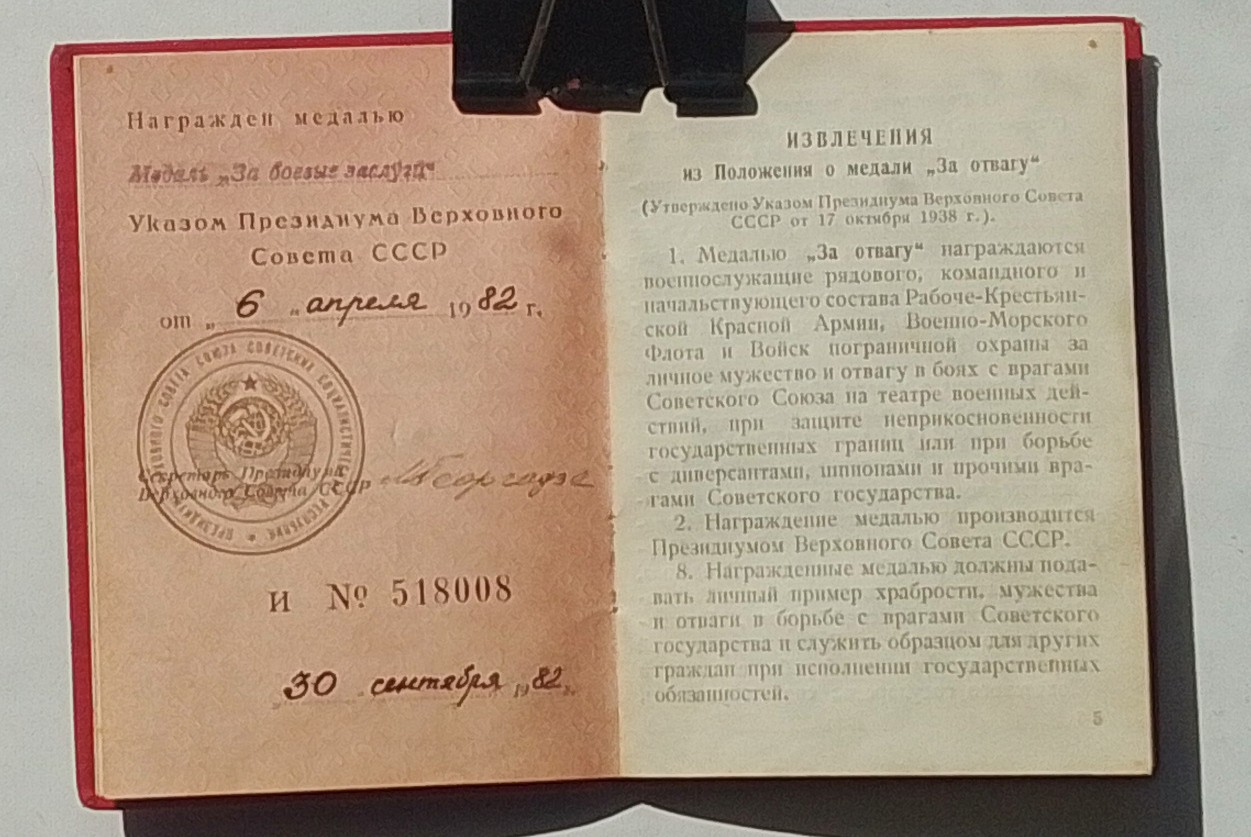 Награжден медалью
Медаль „За боевые заслуги“
Указом Президиума Верховного
Совета СССР
от „ 6 „ апреля 1982 г.
ПРЕЗИДИУМ ВЕРХОВНОГО СОВЕТА СОЮЗА СОВЕТСКИХ СОЦИАЛИСТИЧЕСКИХ РЕСПУБЛИК
Секретарь Президиума
Верховного Совета СССР
И № 518008
„ 30 „ сентября 1982 г.
ИЗВЛЕЧЕНИЯ
из Положения о медали „За отвагу“
(Утверждено Указом Президиума Верховного Совета
СССР от 17 октября 1938 г.).
1. Медалью „За отвагу“ награждаются
военнослужащие рядового, командного и
начальствующего состава Рабоче-Крестьян-
ской Красной Армии, Военно-Морского
Флота и Войск пограничной охраны за
личное мужество и отвагу в боях с врагами
Советского Союза на театре военных дей-
ствий, при защите неприкосновенности
государственных границ или при борьбе
с диверсантами, шпионами и прочими вра-
гами Советского государства.
2. Награждение медалью производится
Президиумом Верховного Совета СССР.
8. Награжденные медалью должны пода-
вать личный пример храбрости, мужества
и отваги в борьбе с врагами Советского
государства и служить образцом для других
граждан при исполнении государственных
обязанностей.
5